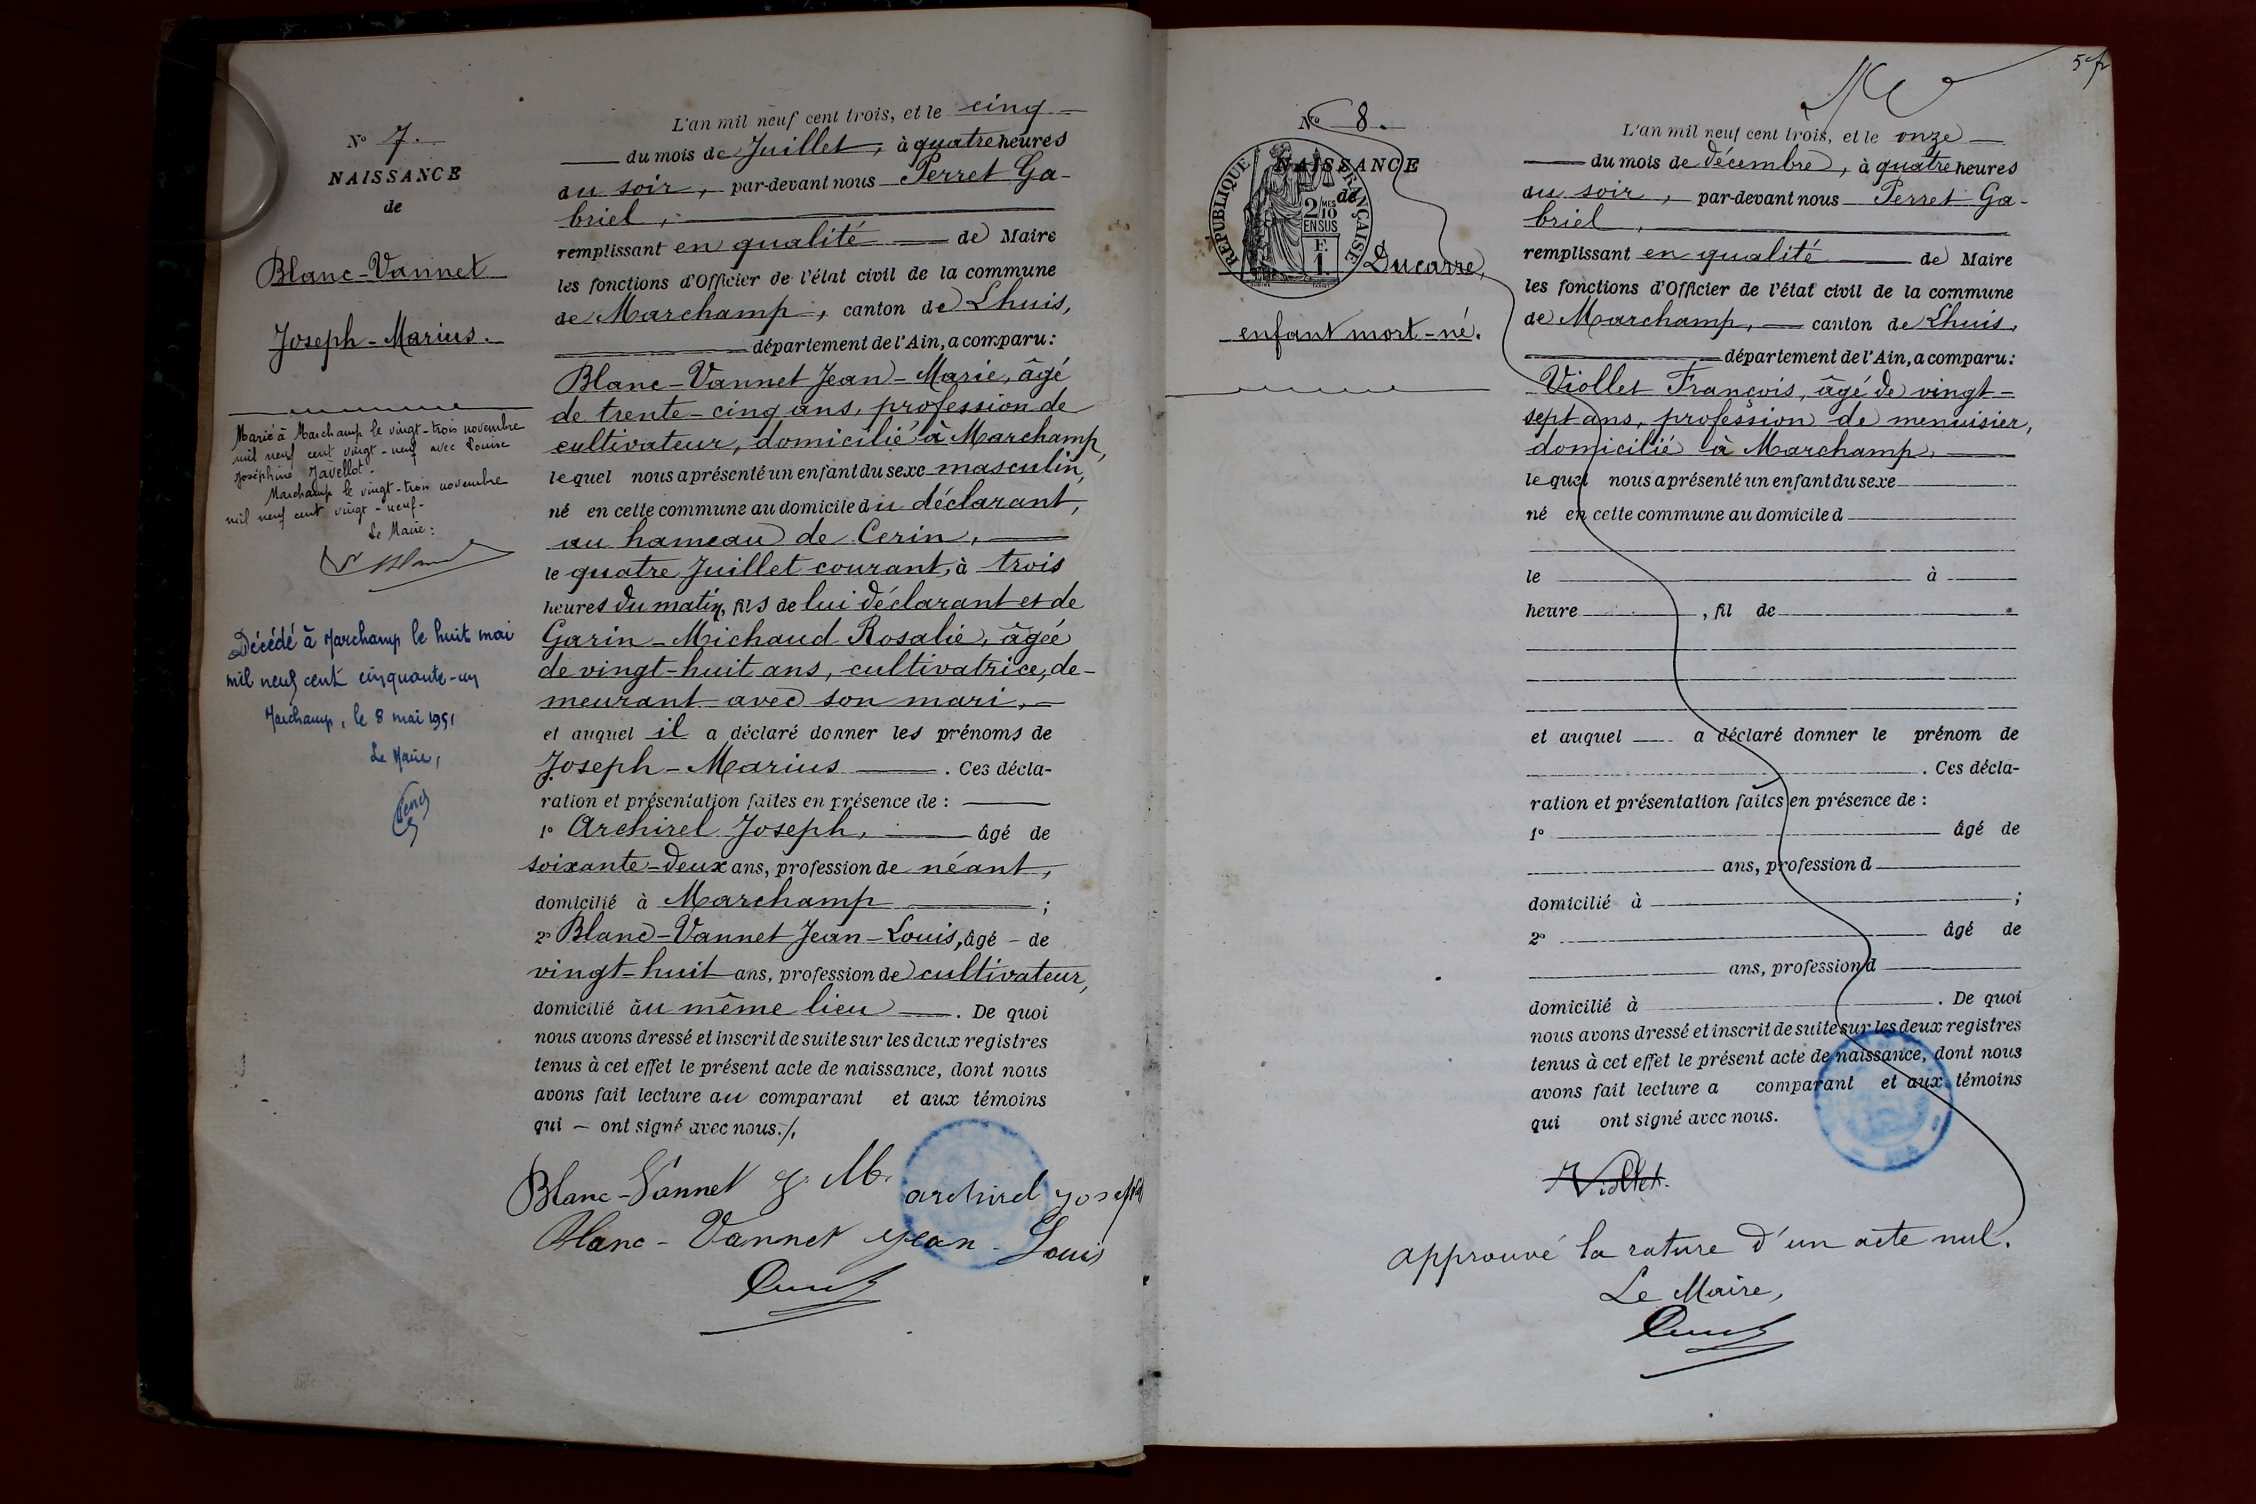 N° 7.
NAISSANCE
de
Blanc-Vannet
Joseph-Marius.
Marié à Marchamp le vingt-trois novembre
mil neuf cent vingt-neuf avec Louise
Joséphine Javellot.
Marchamp le vingt-trois novembre
mil neuf cent vingt-neuf.
Le Maire :
Décédé à Marchamp le huit mai
mil neuf cent cinquante-un
Marchamp, le 8 mai 1951
Le Maire,
L'an mil neuf cent trois, et le cinq
du mois de Juillet, à quatre heures
du soir, par-devant nous Perret Ga-
briel,
remplissant en qualité de Maire
les fonctions d'Officier de l'état civil de la commune
de Marchamp, canton de Lhuis,
département de l'Ain, a comparu :
Blanc-Vannet Jean-Marie, âgé
de trente-cinq ans, profession de
cultivateur, domicilié à Marchamp,
lequel nous a présenté un enfant du sexe masculin,
né en cette commune au domicile du déclarant,
au hameau de Cerin,
le quatre Juillet courant, à trois
heures du matin, fils de lui déclarant et de
Garin-Michaud Rosalie, âgée
de vingt-huit ans, cultivatrice, de-
meurant avec son mari,
et auquel il a déclaré donner les prénoms de
Joseph-Marius . Ces décla-
ration et présentation faites en présence de :
1° Archirel Joseph, âgé de
soixante-deux ans, profession de néant,
domicilié à Marchamp ;
2° Blanc-Vannet Jean-Louis, âgé de
vingt-huit ans, profession de cultivateur,
domicilié au même lieu . De quoi
nous avons dressé et inscrit de suite sur les deux registres
tenus à cet effet le présent acte de naissance, dont nous
avons fait lecture au comparant et aux témoins
qui ont signé avec nous./.
Blanc-Vannet J. M. archirel joseph
Blanc-Vannet Jean-Louis
N° 8.
NAISSANCE
de
RÉPUBLIQUE FRANÇAISE
2 MES
10
EN SUS
F.
1.
Ducarre,
enfant mort-né.
L'an mil neuf cent trois, et le onze
du mois de décembre, à quatre heures
du soir, par-devant nous Perret Ga-
briel,
remplissant en qualité de Maire
les fonctions d'Officier de l'état civil de la commune
de Marchamp, canton de Lhuis,
département de l'Ain, a comparu :
Viollet François, âgé de vingt-
sept ans, profession de menuisier,
domicilié à Marchamp,
lequel nous a présenté un enfant du sexe
né en cette commune au domicile d
le à
heure , fil de
et auquel a déclaré donner le prénom de
. Ces décla-
ration et présentation faites en présence de :
1° âgé de
ans, profession d
domicilié à ;
2° âgé de
ans, profession d
domicilié à . De quoi
nous avons dressé et inscrit de suite sur les deux registres
tenus à cet effet le présent acte de naissance, dont nous
avons fait lecture a comparant et aux témoins
qui ont signé avec nous.
Viollet.
approuvé la rature d'un acte nul.
Le Maire,